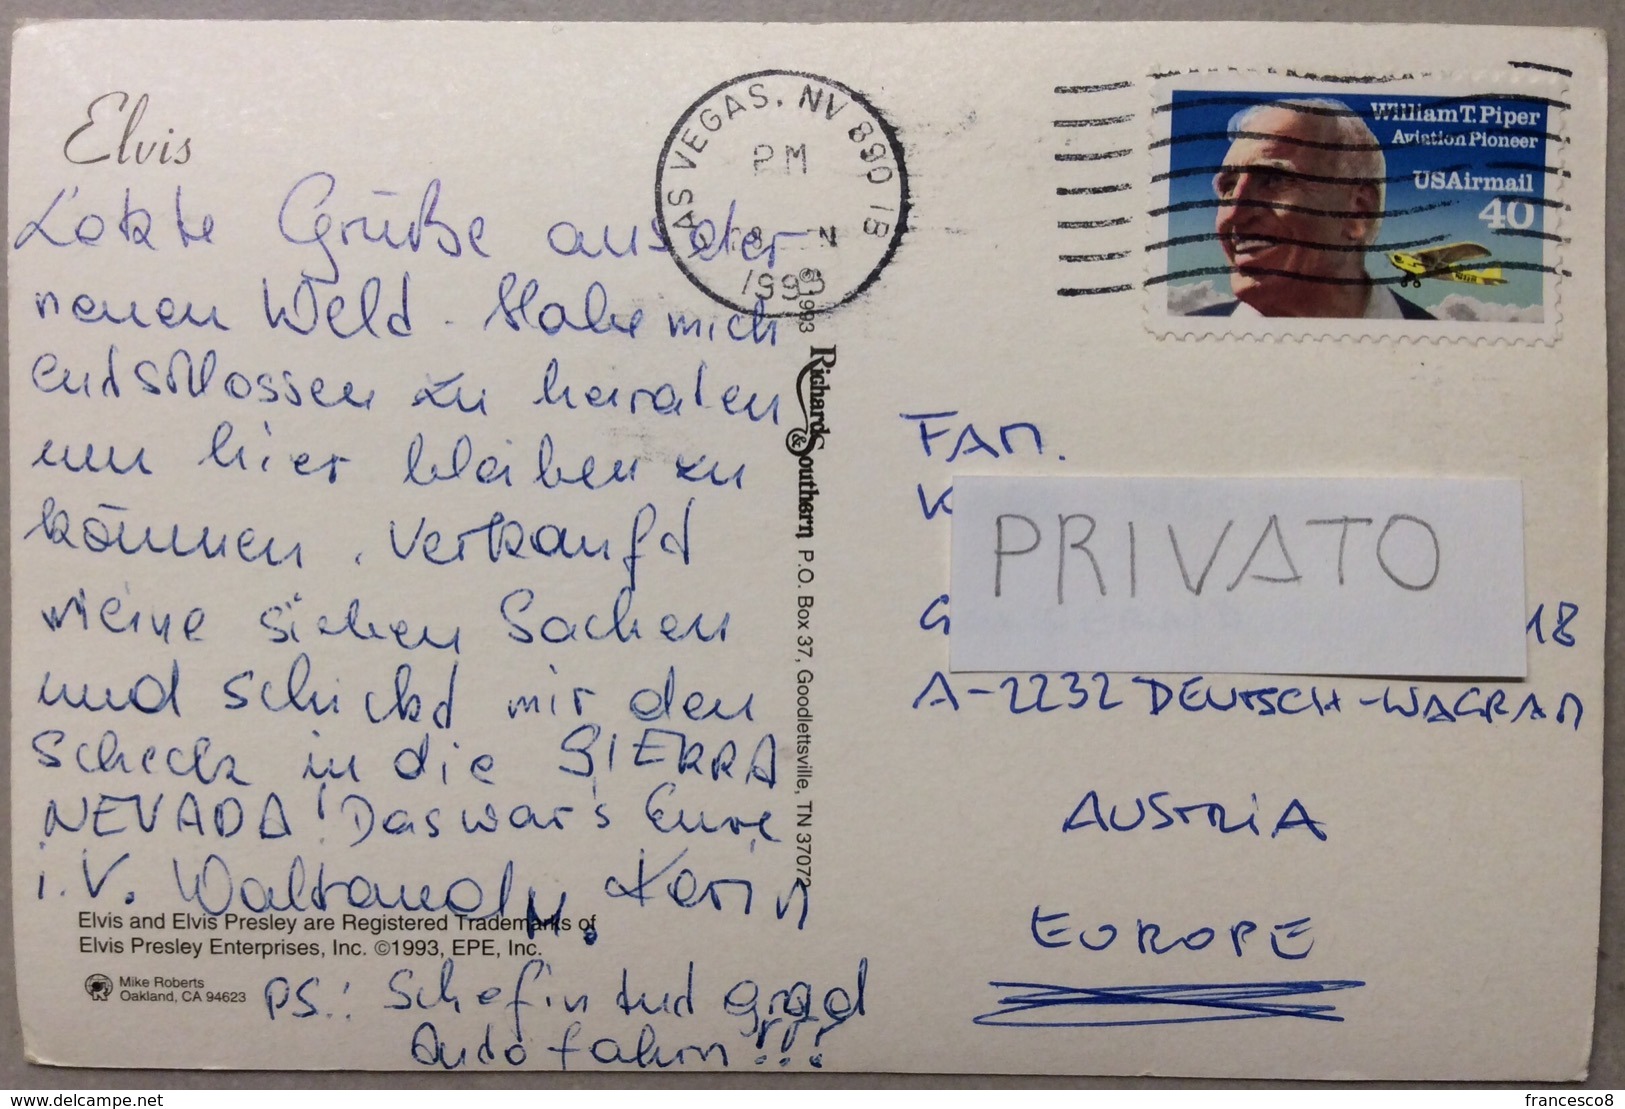 Elvis
Letzte Grüße aus der
neuen Welt. Habe mich
entschlossen zu heiraten
um hier bleiben zu
können. Verkauft
meine sieben Sachen
und schickt mir den
Scheck in die SIERRA
NEVADA! Das war's Eure
i.V. Waltraud u. Karin
Elvis and Elvis Presley are Registered Trademarks of
Elvis Presley Enterprises, Inc. ©1993, EPE, Inc.
Mike Roberts
Oakland, CA 94623
PS.: Schefin tut grad
Auto fahrn!!!
©1993 Richards & Southern P.O. Box 37, Goodlettsville, TN 37072
LAS VEGAS, NV 890 1B
PM
1993
William T. Piper
Aviation Pioneer
USAirmail
40
FAM.
K
PRIVATO
G 18
A-2232 DEUTSCH-WAGRAM
AUSTRIA
EUROPE
delcampe.net
francesco8